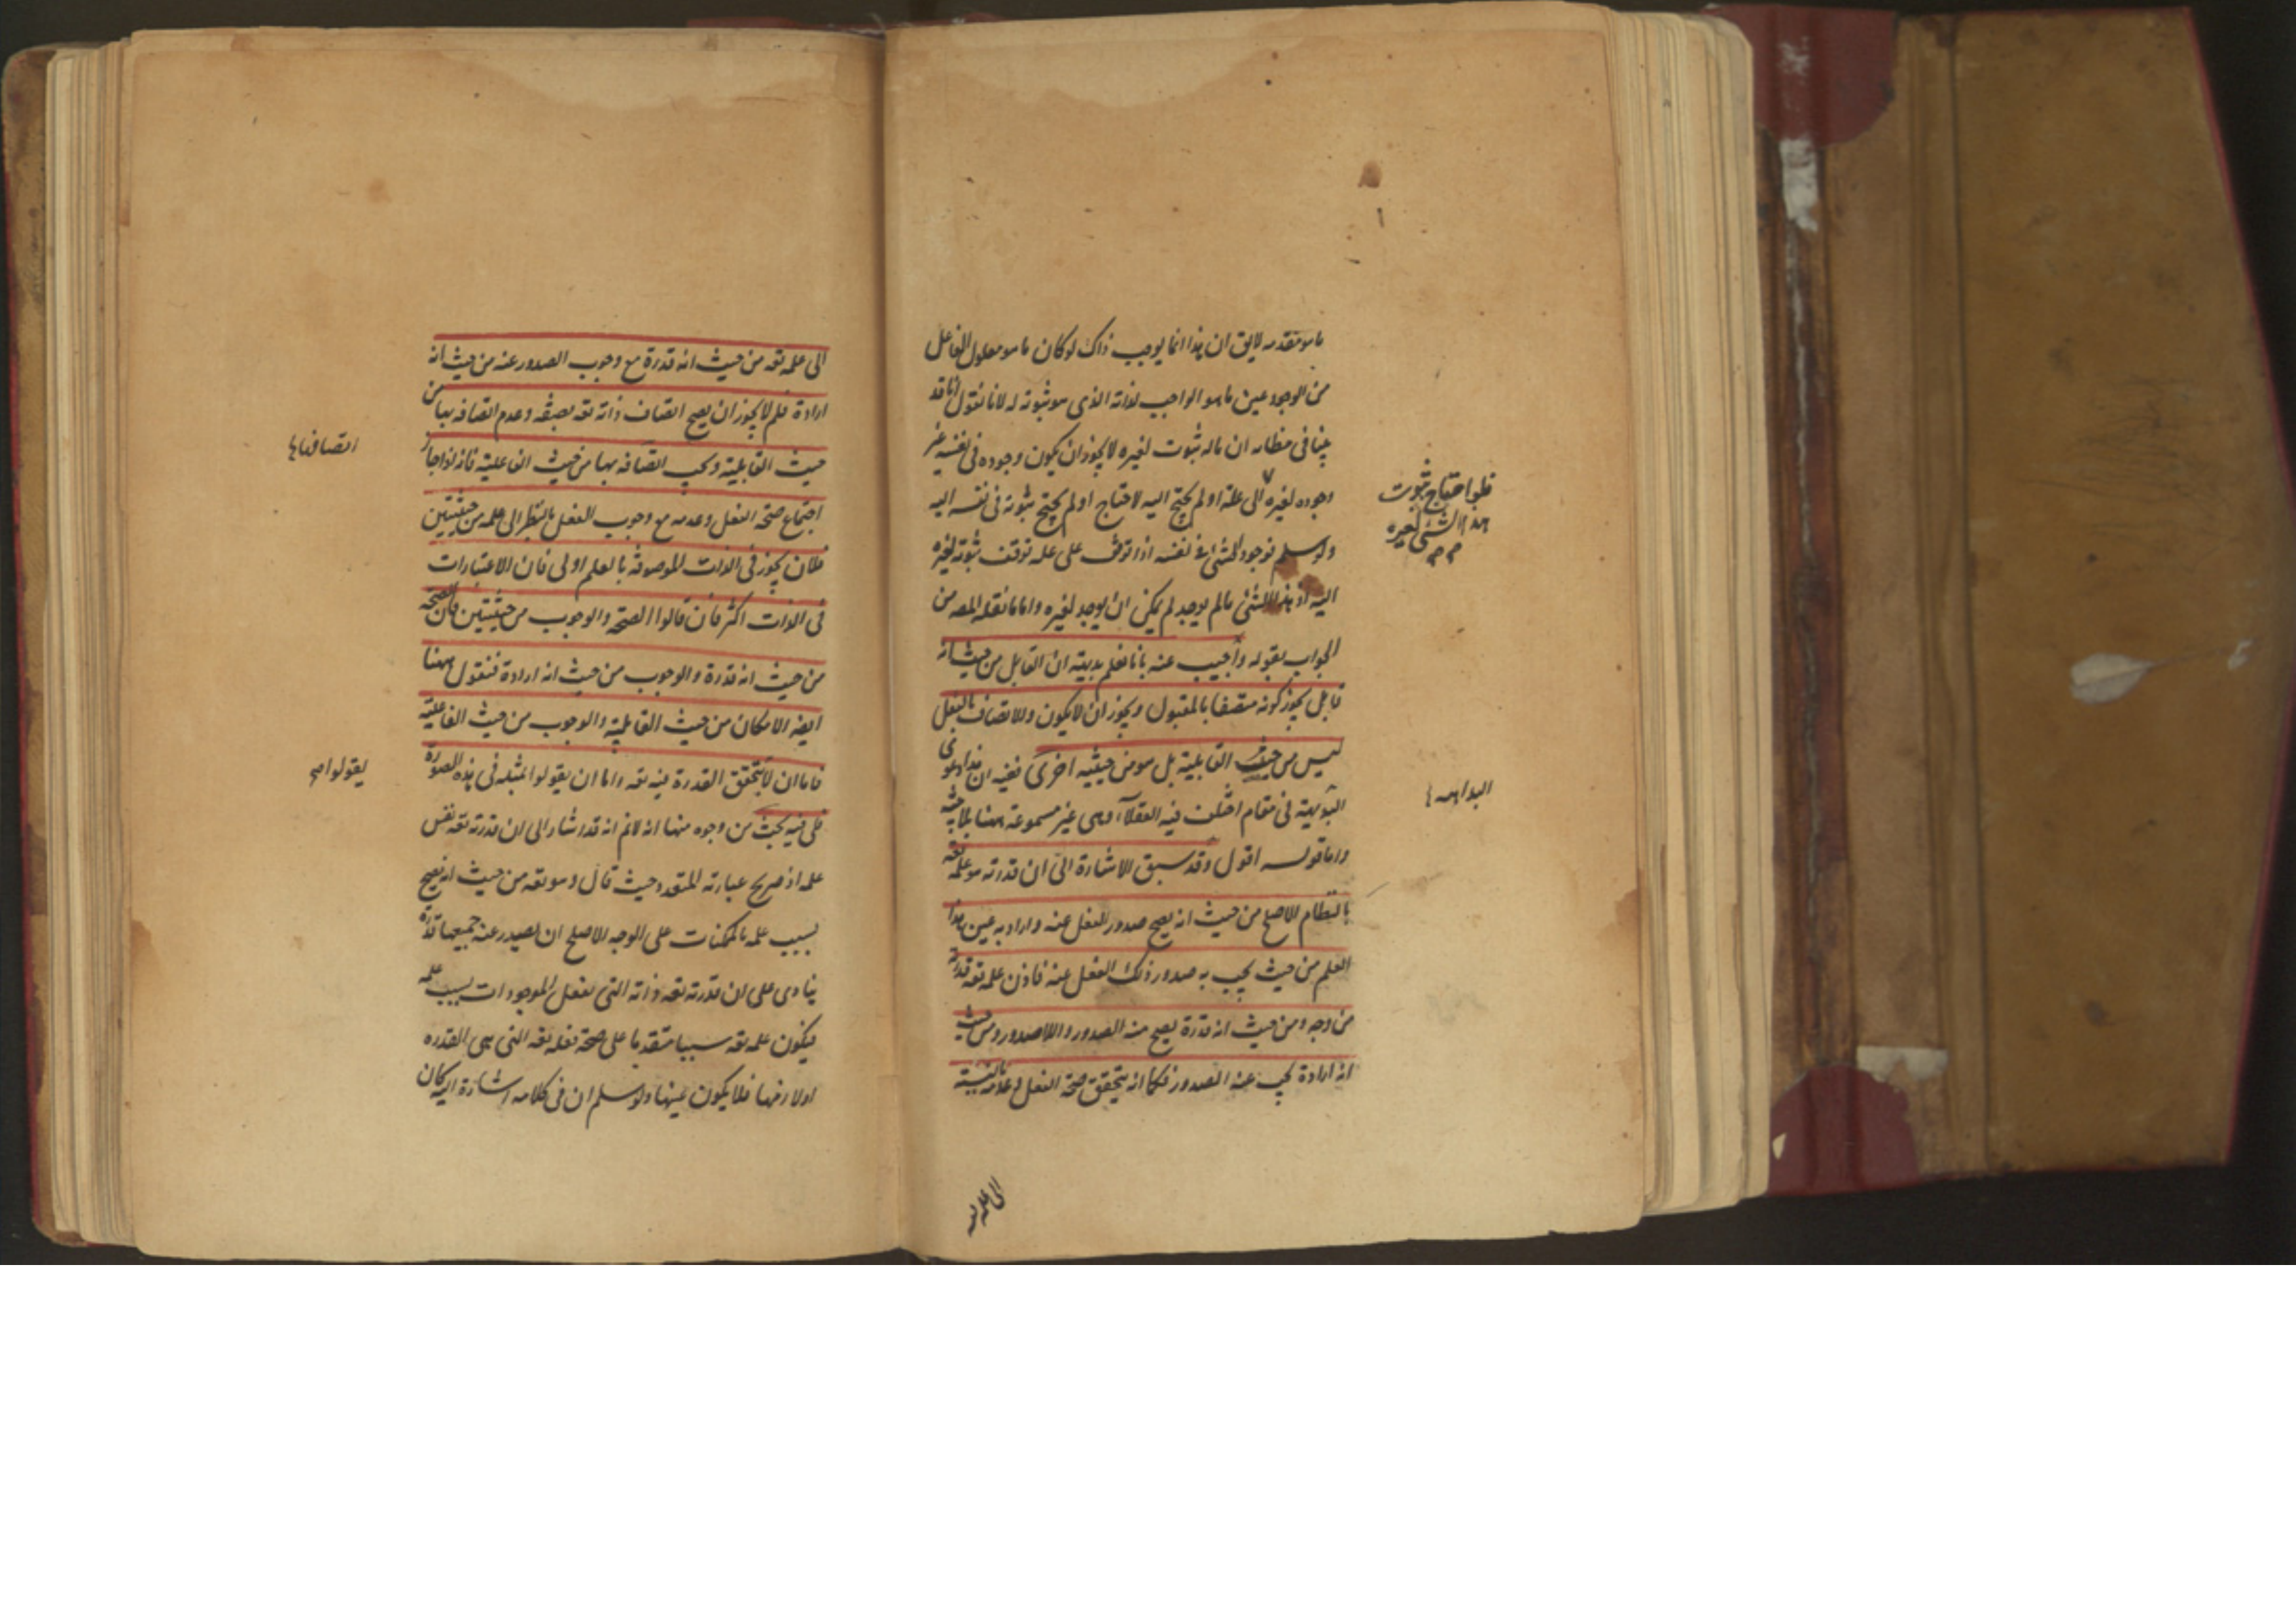 ما هو متقدمه لايق ان هذا انما يوجب ذاك لو كان ما هو معلول الفاعل
من الوجود عين ما هو الواجب لذاته الذى هو ثبوته له لانا نقول انا قد
بينا فى مظانه ان ماله ثبوت لغيره لا يجوز ان يكون وجوده فى نفسه غير
وجوده لغيره الى علة او لم يحتج اليه لاحتاج او لم يحتج ثبوته فى نفسه اليه
ولو سلم فوجود الشئ فى نفسه اذا توقف على علة توقف ثبوته لغيره
اليه اذ هذا الشئ مالم يوجد لم يمكن ان يوجد لغيره واما ما نقله المص من
الجواب بقوله واجيب عنه بانا نعلم بديهة ان القابل من حيث انه
قابل يجوز كونه متصفا بالمقبول ويجوز ان لا يكون والاتصاف بالفعل
ليس من حيث القابلية بل هو من حيثية اخرى ففيه ان هذا دعوى
البديهة فى مقام اختلف فيه العقلاء وهى غير مسموعة ههنا
واما قوله اقول وقد سبق الاشارة الى ان قدرته هو علمه تعه
بالنظام الاصلح من حيث انه يصح صدور الفعل عنه وارادته عين هذا
العلم من حيث يجب به صدور ذلك الفعل عنه فاذن علمه تعه قدرة
من وجه ومن حيث انه قدرة يصح منه الصدور واللاصدور ومن حيث
انه ارادة يجب عنه الصدور فكما انه يتحقق صحة الفعل وعدمه بالنسبة
فلو احتاج ثبوت
هذا الشئ لغيره
البداهة
الى علمه تعه
الى علمه تعه من حيث انه قدرة مع وجوب الصدور عنه من حيث انه
ارادة فلم لا يجوز ان يصح اتصاف ذاته تعه بصفة وعدم اتصافه بها من
حيث القابلية ويجب اتصافه بها من حيث الفاعلية فانه اذا جاز
اجتماع صحة الفعل وعدمه مع وجوب الفعل بالنظر الى علمه من حيثيتين
فلان يجوز فى الذات الموصوفة بالعلم اولى فان الاعتبارات
فى الذات اكثر فان قالوا الصحة والوجوب من حيثيتين فان الصحة
من حيث انه قدرة والوجوب من حيث انه ارادة فنقول ههنا
ايضه الامكان من حيث القابلية والوجوب من حيث الفاعلية
فاما ان لا يتحقق القدرة فيه تعه واما ان يقولوا لمثله فى هذه الصورة
فلى فيه بحث من وجوه منها انه لانم انه قد اشار الى ان قدرته تعه نفس
علمه اذ صريح عبارته المتقدمة حيث قال وهو تعه من حيث انه يصح
بسبب علمه بالممكنات على الوجه الاصلح ان يصدر عنه جميعها قدرة
ينادى على ان قدرته تعه ذاته التى يفعل الموجودات بسبب علمه
فيكون علمه تعه سببا متقدما على صحة فعله تعه التى هى القدره
اولازمها فلا يكون عينها ولو سلم ان فى كلامه اشارة اليه كان
اتصافها
يقولوا صح